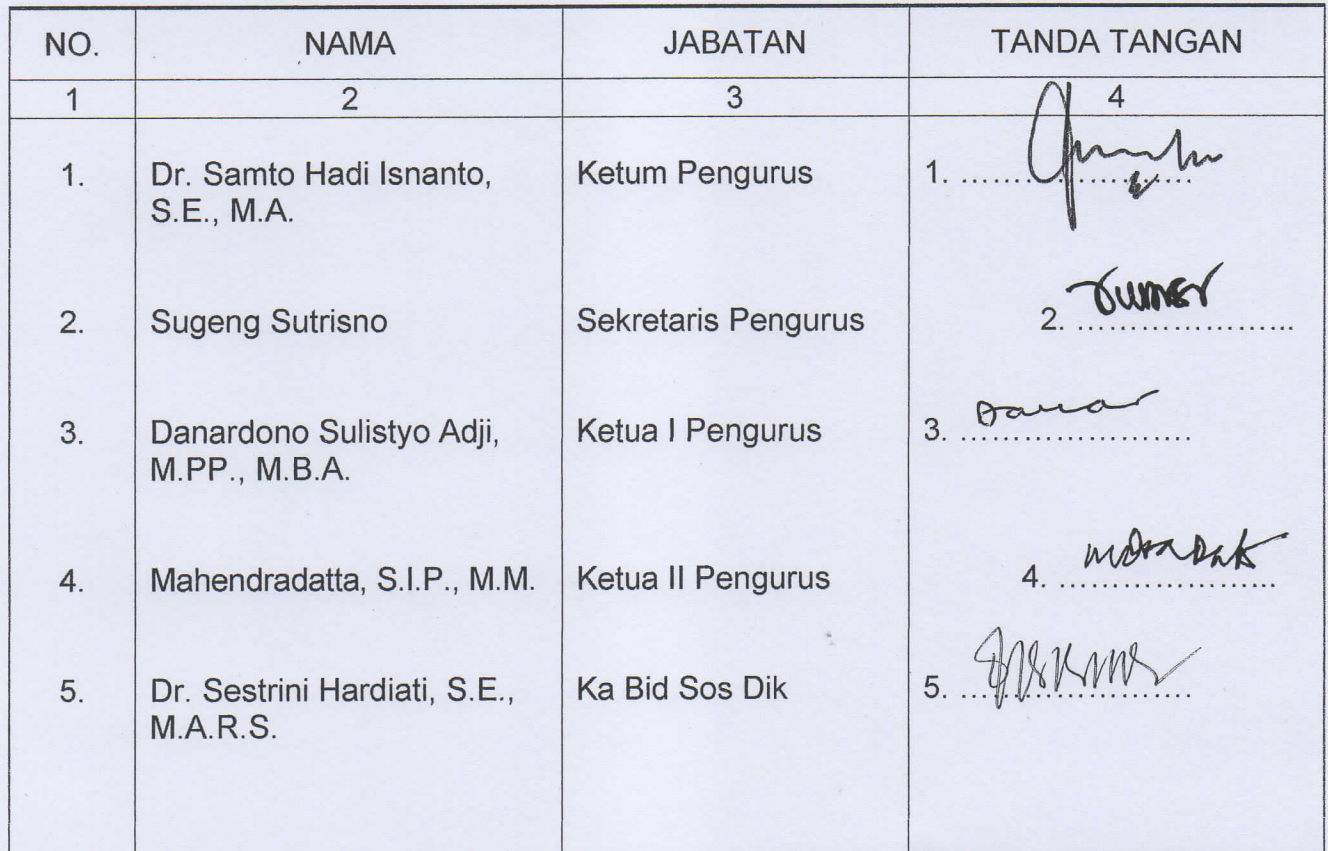 NO. NAMA JABATAN TANDA TANGAN
1 2 3 4
1. Dr. Samto Hadi Isnanto, Ketum Pengurus 1. ........................
S.E., M.A.
2. Sugeng Sutrisno Sekretaris Pengurus 2. ........................
3. Danardono Sulistyo Adji, Ketua I Pengurus 3. ........................
M.PP., M.B.A.
4. Mahendradatta, S.I.P., M.M. Ketua II Pengurus 4. ........................
5. Dr. Sestrini Hardiati, S.E., Ka Bid Sos Dik 5. ........................
M.A.R.S.